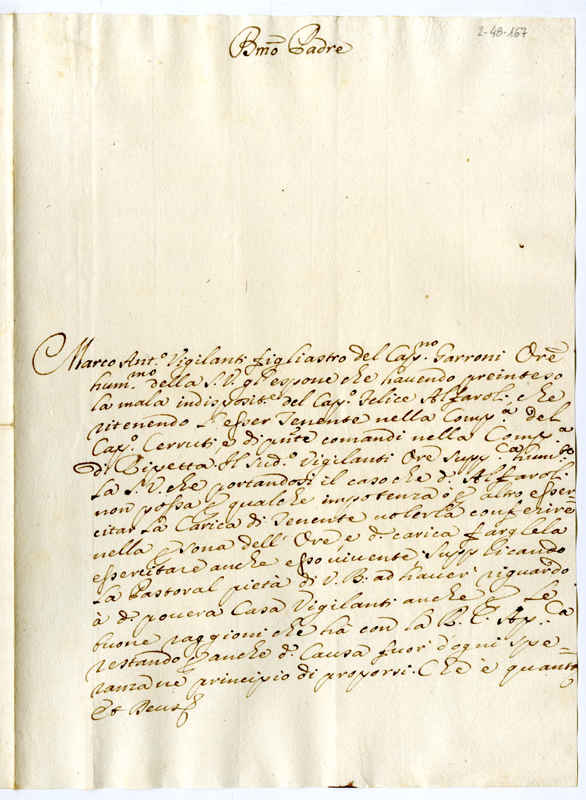 2-48-167
Bmo Padre
Marco Ant.o Vigilanti figliastro del Cap.no Garroni Ore
hum.mo della S.V. gl'espone che havendo preinteso
la mala indisposit.e del Cap.o Felice Alfaroli, che
ritenendo l'esser Tenente nella Comp.a del
Cap.o Cerruti, e di pnte comandi nella Comp.a
di Ripetta. Il sud.o Vigilanti Ore supp.ca hum.te
la S.V. che portandosi il caso che d.o Alfaroli
non possa p qualche impotenza ò p altro esser-
citar la Carica di Tenente volerla conferire
nella psona dell'Ore e d.a carica farglela
essercitare anche esso vivente supplicando
la Pastoral pietà di V.B. ad haver riguardo
à d.a povera Casa Vigilanti anche p le
buone raggioni che hà con la R.C. Ap.ca
restando p anche d.a Causa fuor d'ogni spe=
ranza ne principio di proporsi. Che è quanto
Et Deus